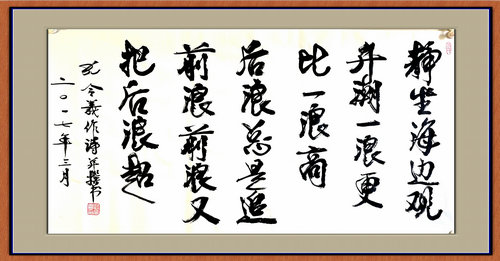 静坐海边观
升潮一浪更
比一浪高
后浪总是追
前浪前浪又
把后浪超
孔令義作诗并撰书
二〇一七年三月